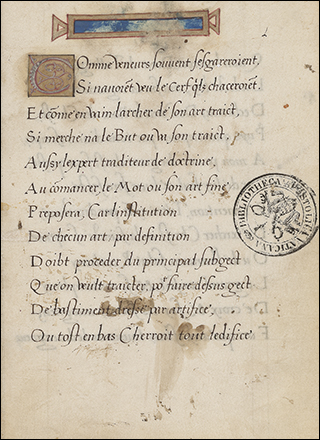 Comme veneurs souvent sesgareroient,
Si navoiẽt veu le Cerf qͥlz chaceroiẽt.
Et cõme en vain larcher de son art traict,
Si merche na le But ou va son traict,
Aussy lexpert traditeur de doctrine,
Au cõmancer, le Mot ou son art fine
Preposera, Car linstitution
De checun art par definition
Doibt proceder du principal subgect
Que on veult traicter, pͬ faire desus gect
De bastiment dresse par artifice,
Ou tost en bas Cherroit tout ledifice
BIBLIOTHECA APOSTOLICA VATICANA